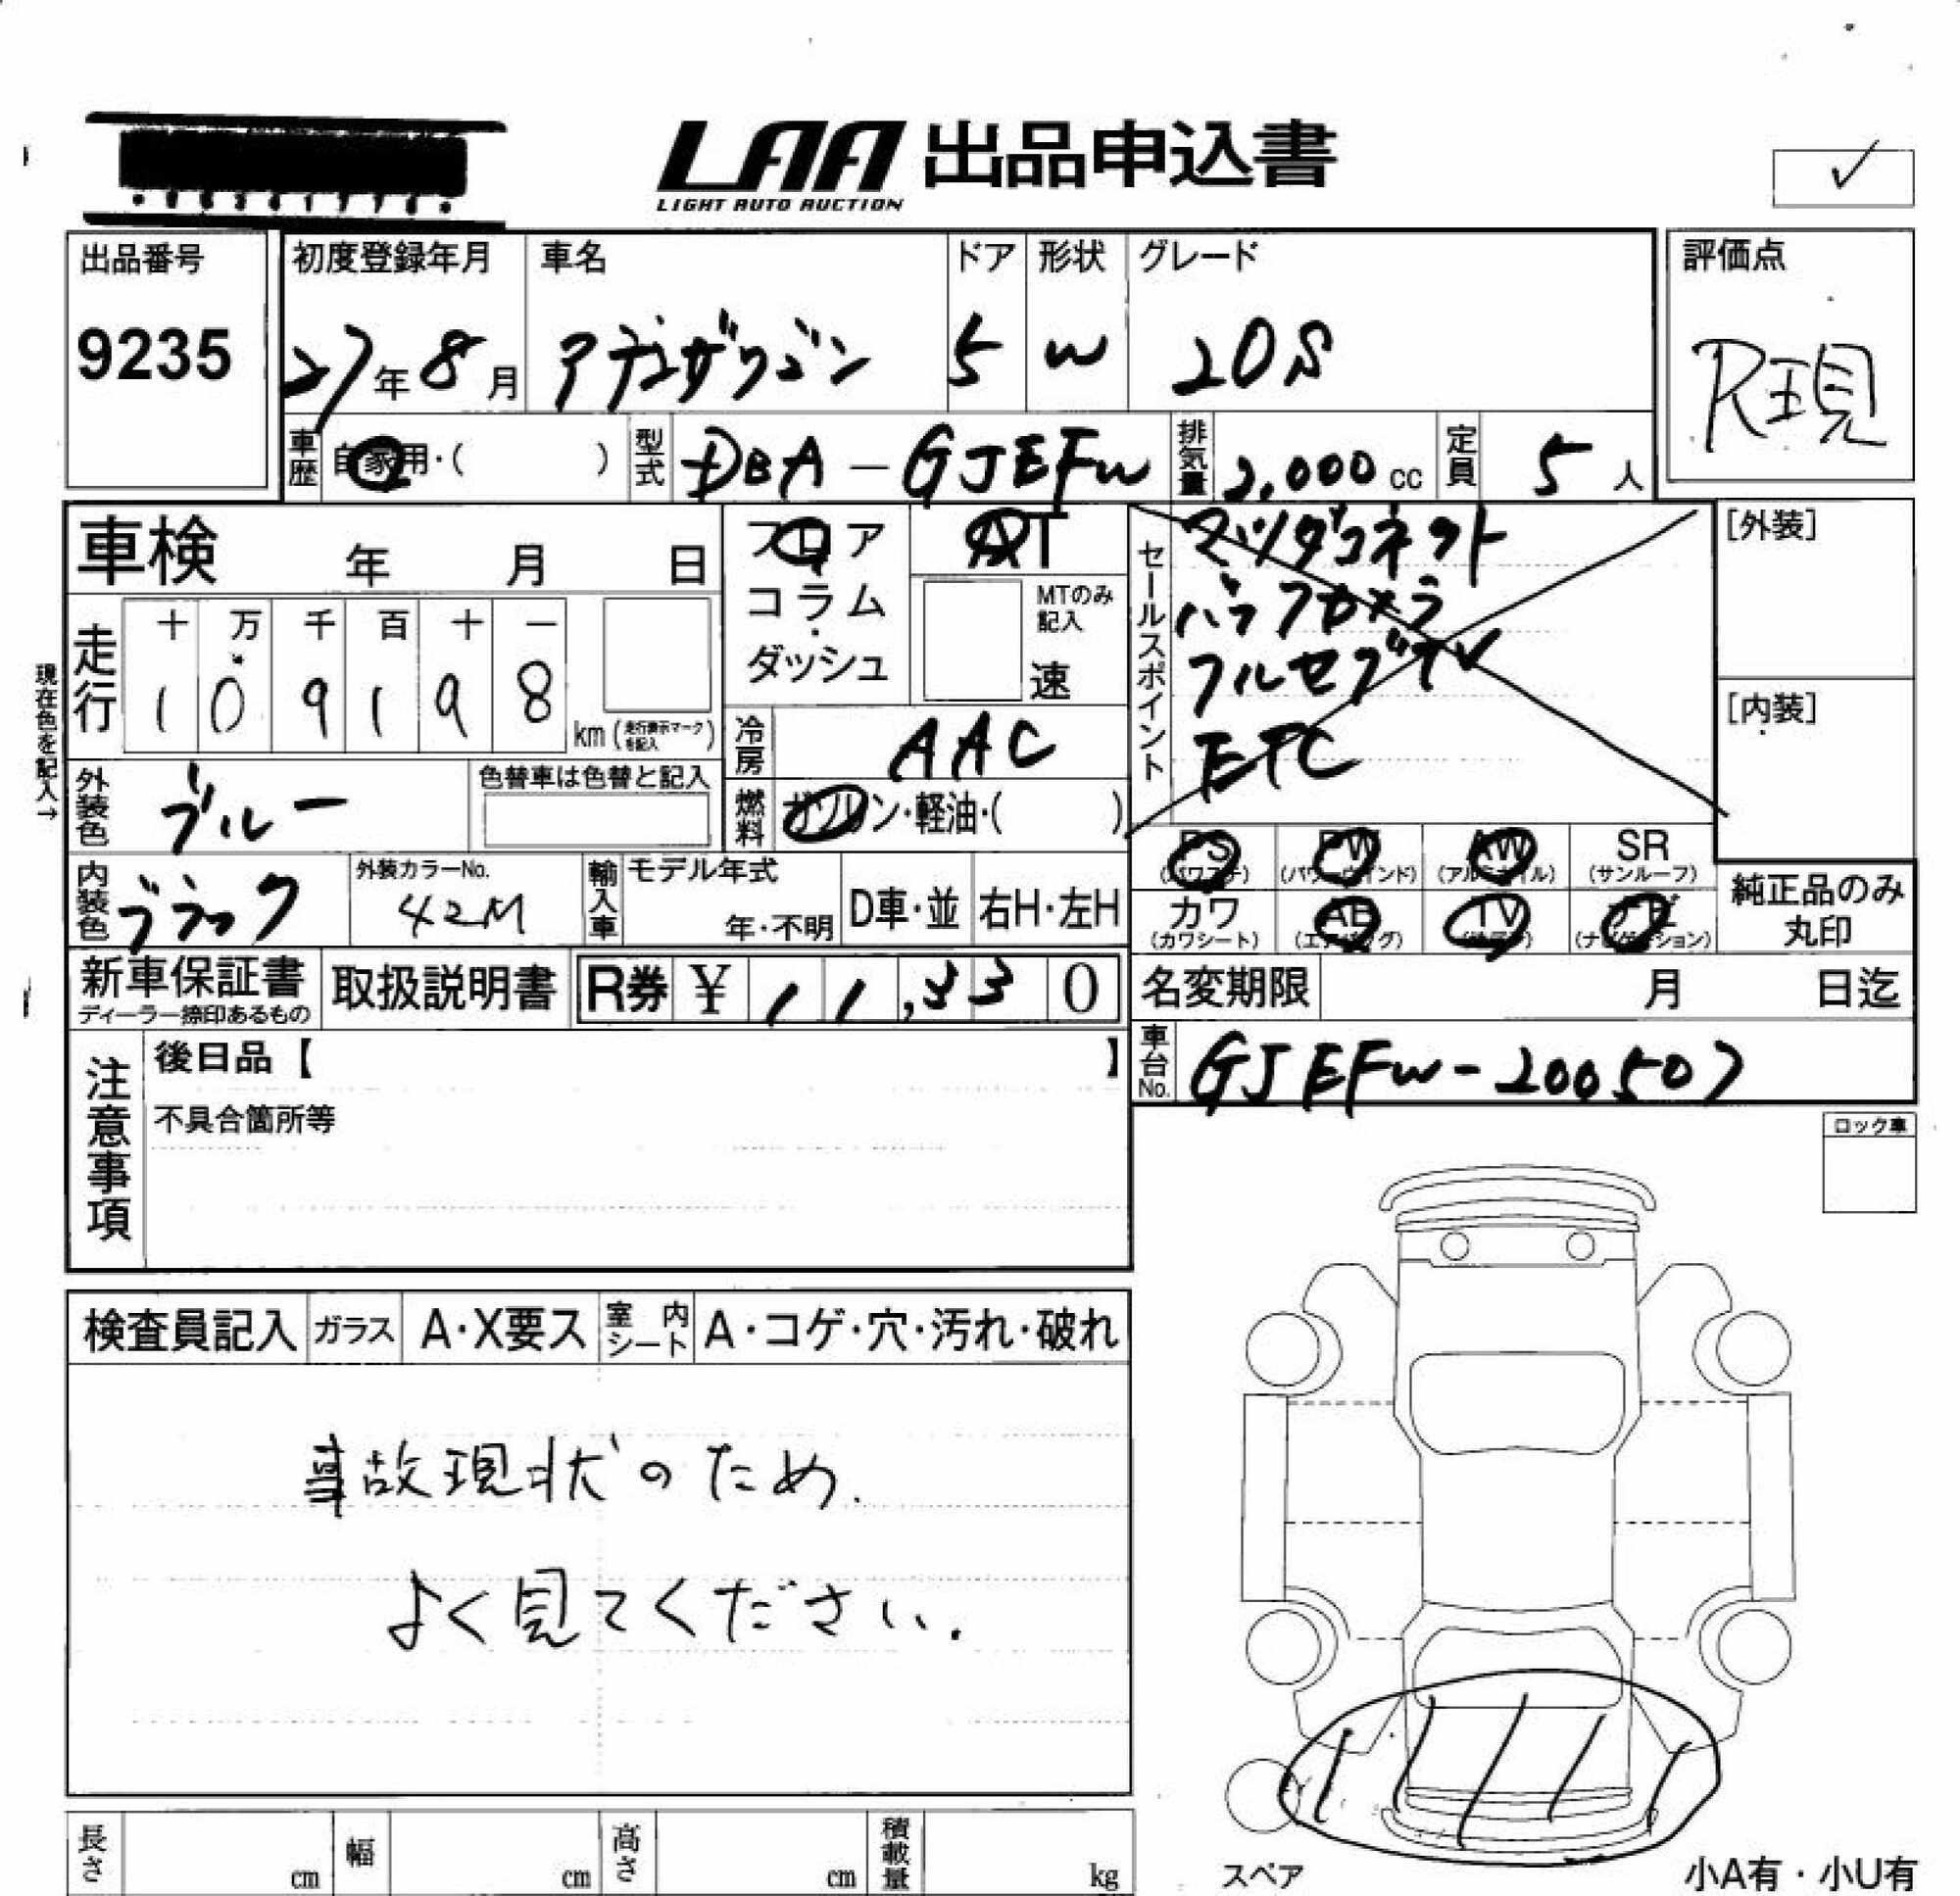 LAA 出品申込書
LIGHT AUTO AUCTION
✓
出品番号
9235
初度登録年月
27年8月
車名
アテンザワゴン
ドア
5
形状
W
グレード
20S
評価点
R現
車歴
自家用・( )
型式
DBA-GJEFW
排気量
2,000cc
定員
5人
車検 年 月 日
フロア
コラム
・
ダッシュ
AT
MTのみ
記入
速
セールスポイント
マツダコネクト
バックカメラ
フルセグTV
ETC
[外装]
[内装]
現在色を記入→
走行
十 万 千 百 十 一
1 0 9 1 9 8
km (走行表示マークを記入)
冷房
AAC
外装色
ブルー
色替車は色替と記入
燃料
ガソリン・軽油・( )
PS PW AW SR
(パワステ) (パワーウインド) (アルミホイル) (サンルーフ)
カワ AB TV ナビ
(カワシート) (エアバッグ) (ナビゲーション)
純正品のみ
丸印
内装色
ブラック
外装カラーNo.
42M
輸入車
モデル年式
年・不明
D車・並
右H・左H
新車保証書
ディーラー捺印あるもの
取扱説明書
R券 ¥ 11,330
名変期限 月 日迄
車台No.
GJEFW-200507
注意事項
後日品【 】
不具合箇所等
ロック車
検査員記入
ガラス
A・X要ス
室内シート
A・コゲ・穴・汚れ・破れ
事故現状のため.
よく見てください.
長さ cm
幅 cm
高さ cm
積載量 kg
スペア
小A有・小U有